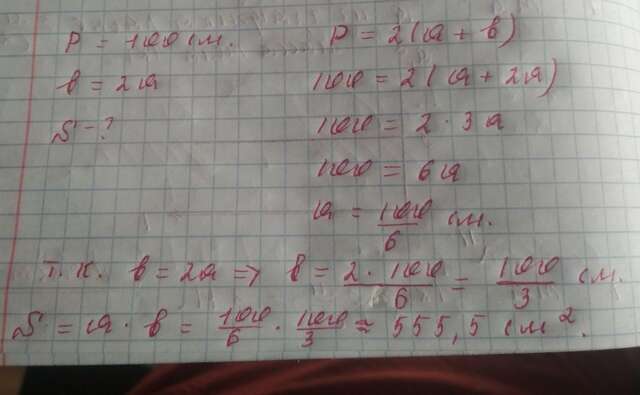 P = 100 см. P = 2(a + b)
b = 2a 100 = 2(a + 2a)
S - ? 100 = 2 · 3a
100 = 6a
a = 100/6 см.
Т.к. b = 2a => b = 2 · 100/6 = 100/3 см.
S = a · b = 100/6 · 100/3 ≈ 555,5 см².